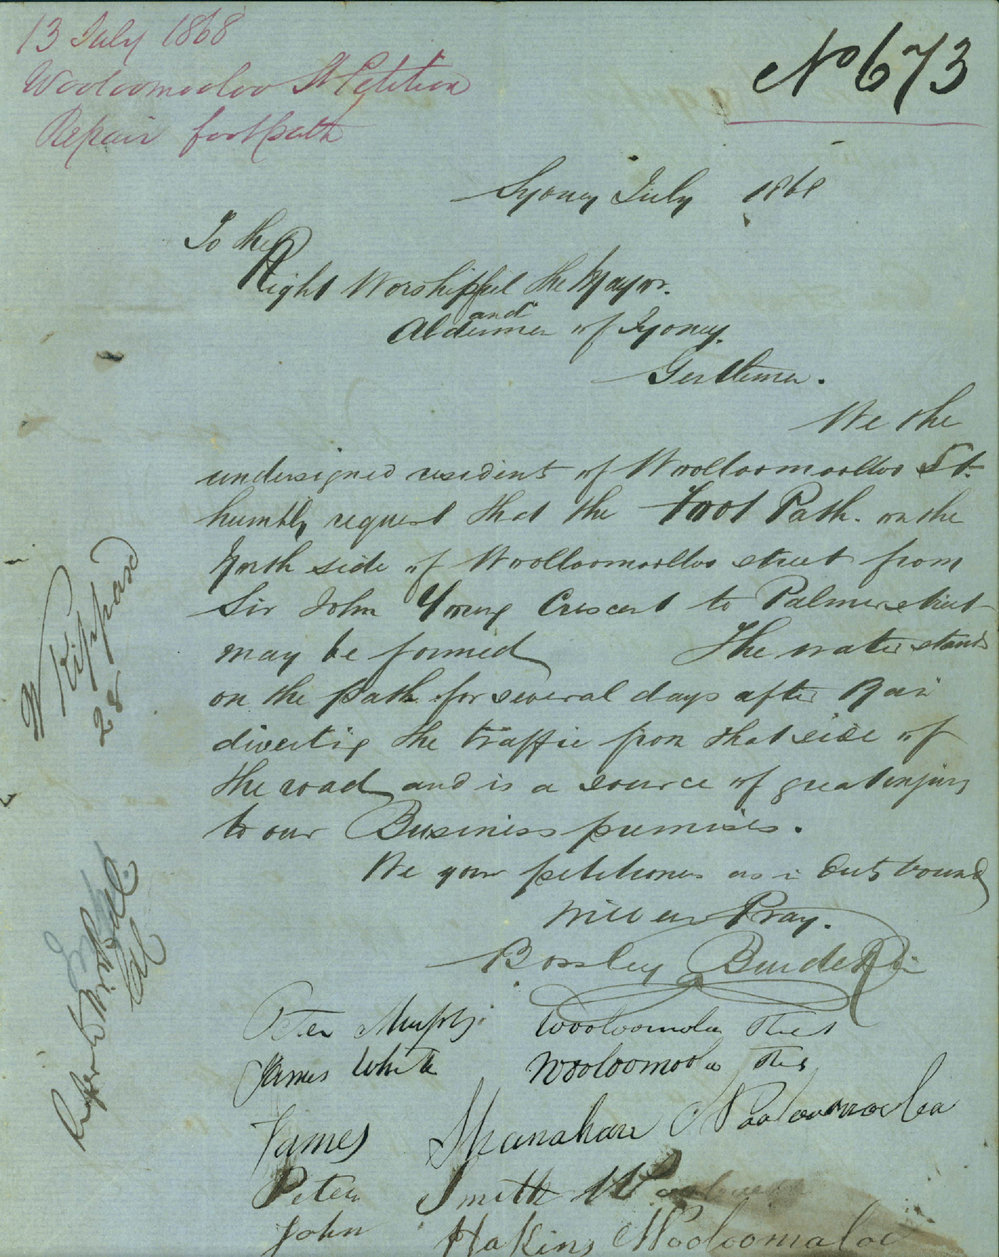 13 July 1868
Wooloomooloo St Petition
Repair footpath
No 673
Sydney July 1868
To the
Right Worshipful the Mayor.
and
Aldermen of Sydney.
Gentlemen.
We the
undersigned resident of Woolloomoolloo St.
humbly request that the Foot Path. on the
North side of Woolloomoolloo street from
Sir John Young Crescent to Palmer street
may be formed The water stands
on the path for several days after Rain
diverting the traffic from that side of
the road and is a source of great injury
to our Business premises.
We your petitioners as in Duty bound
Will ever Pray.
Peter Murphy Wooloomoloo Street
James White Wooloomoloo Street
James Shanahan Wooloomooloo
Peter Smith
John Hakins Wooloomaloo
W Rippard
28
Refer to Mr. Bell